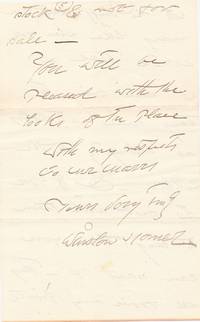 stock not for
sale —
You will be
pleased with the
looks of the place
with my respects
to
Yours Very Truly
Winslow Homer